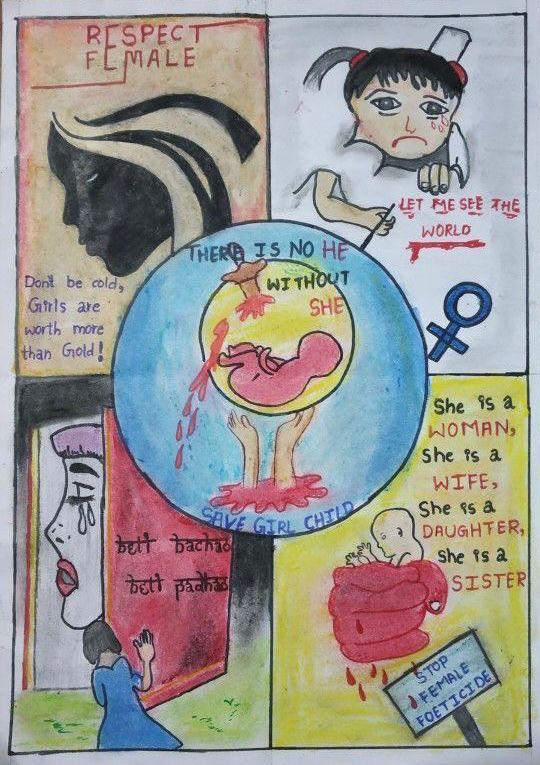 RESPECT
FEMALE
Don't be cold,
Girls are
worth more
than Gold!
LET ME SEE THE
WORLD
THERE IS NO HE
WITHOUT
SHE
SAVE GIRL CHILD
beti bachao
beti padhao
She is a
WOMAN,
She is a
WIFE,
She is a
DAUGHTER,
She is a
SISTER
STOP
FEMALE
FOETICIDE